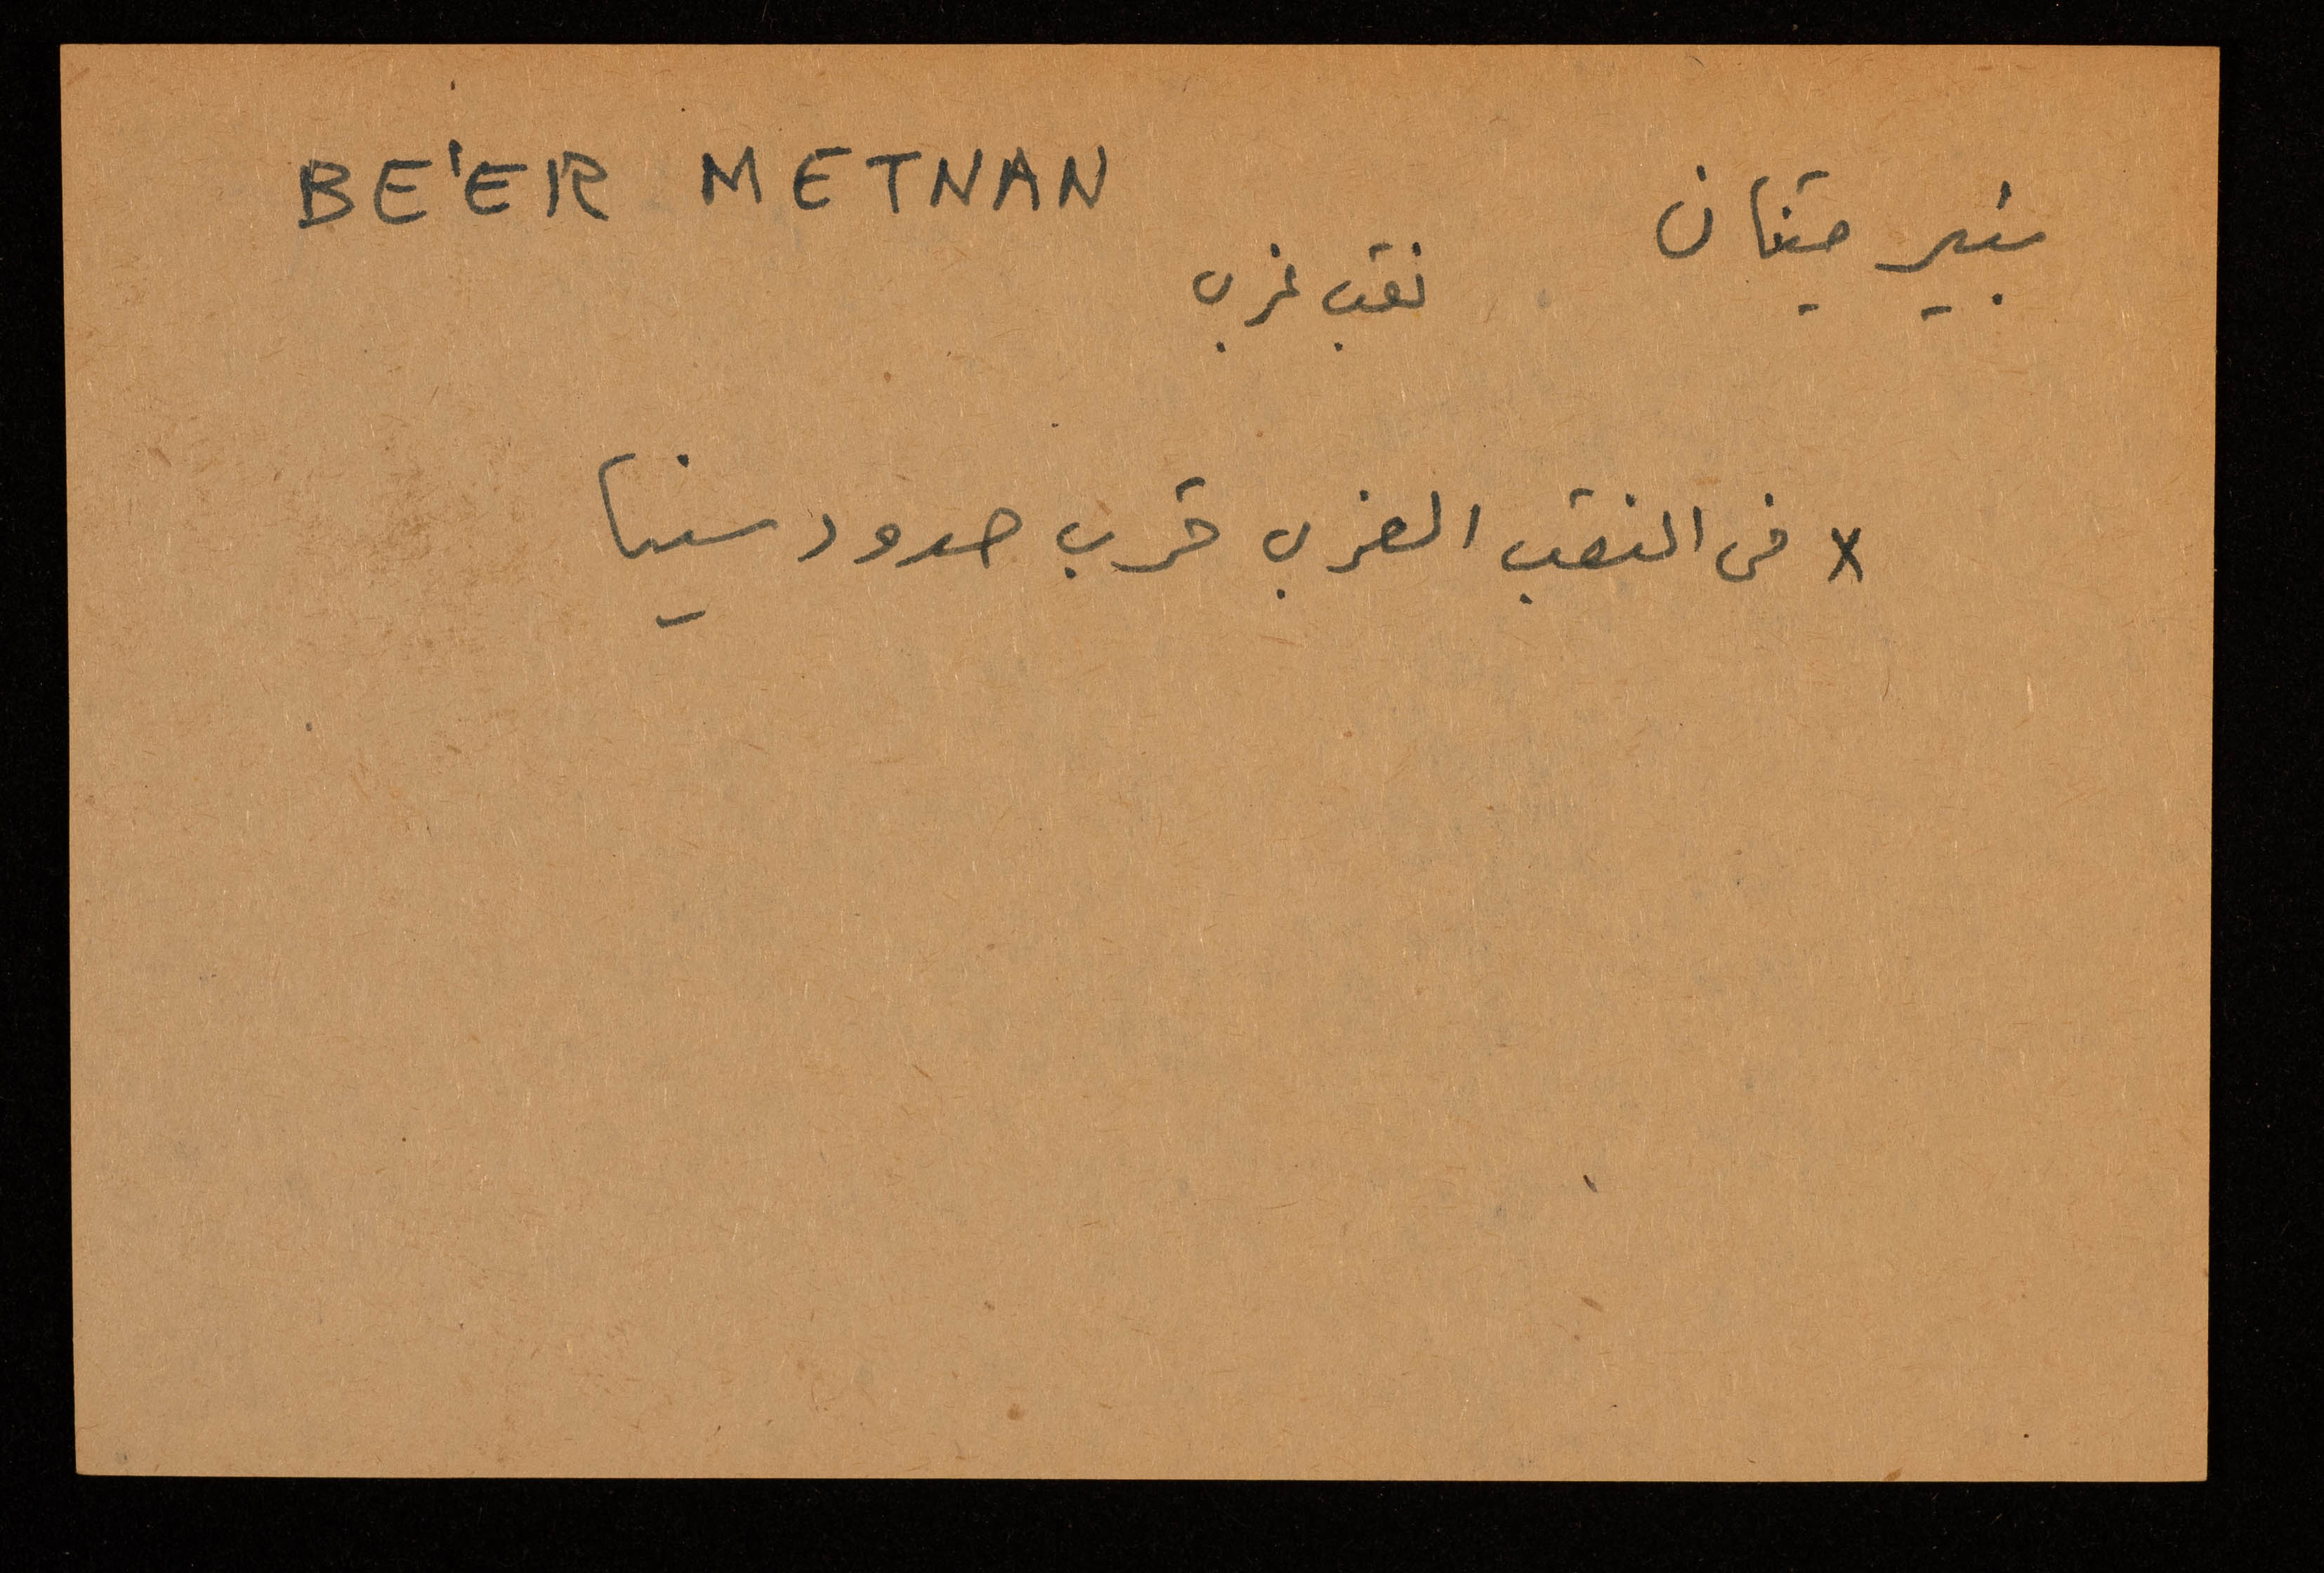 BE'ER METNAN
بئير ميتنان
نقب غرب
x في النقب الغرب قرب حدود سينيا